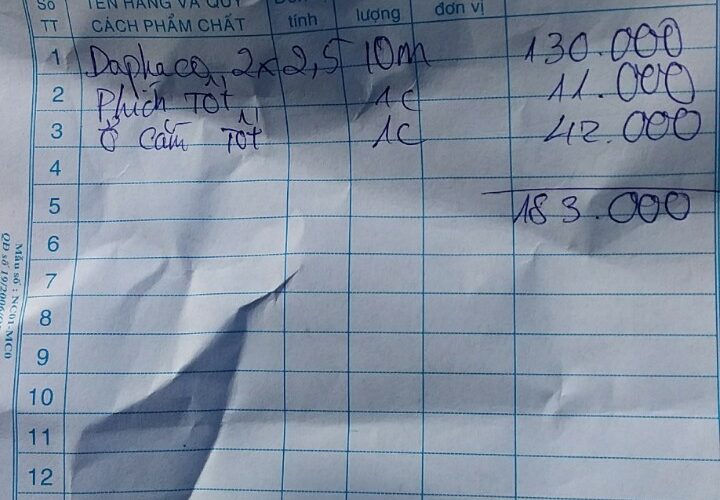 Số TÊN HÀNG VÀ QUY đơn vị
TT CÁCH PHẨM CHẤT tính lượng
1 Daphaco 2x2,5 10m 130.000
2 Phích Tốt 1c 11.000
3 Ổ cắm Tốt 1c 42.000
4
5 183.000
6
7
8
9
10
11
12
Mẫu số : NC01-MC0
QĐ số 19/2006/